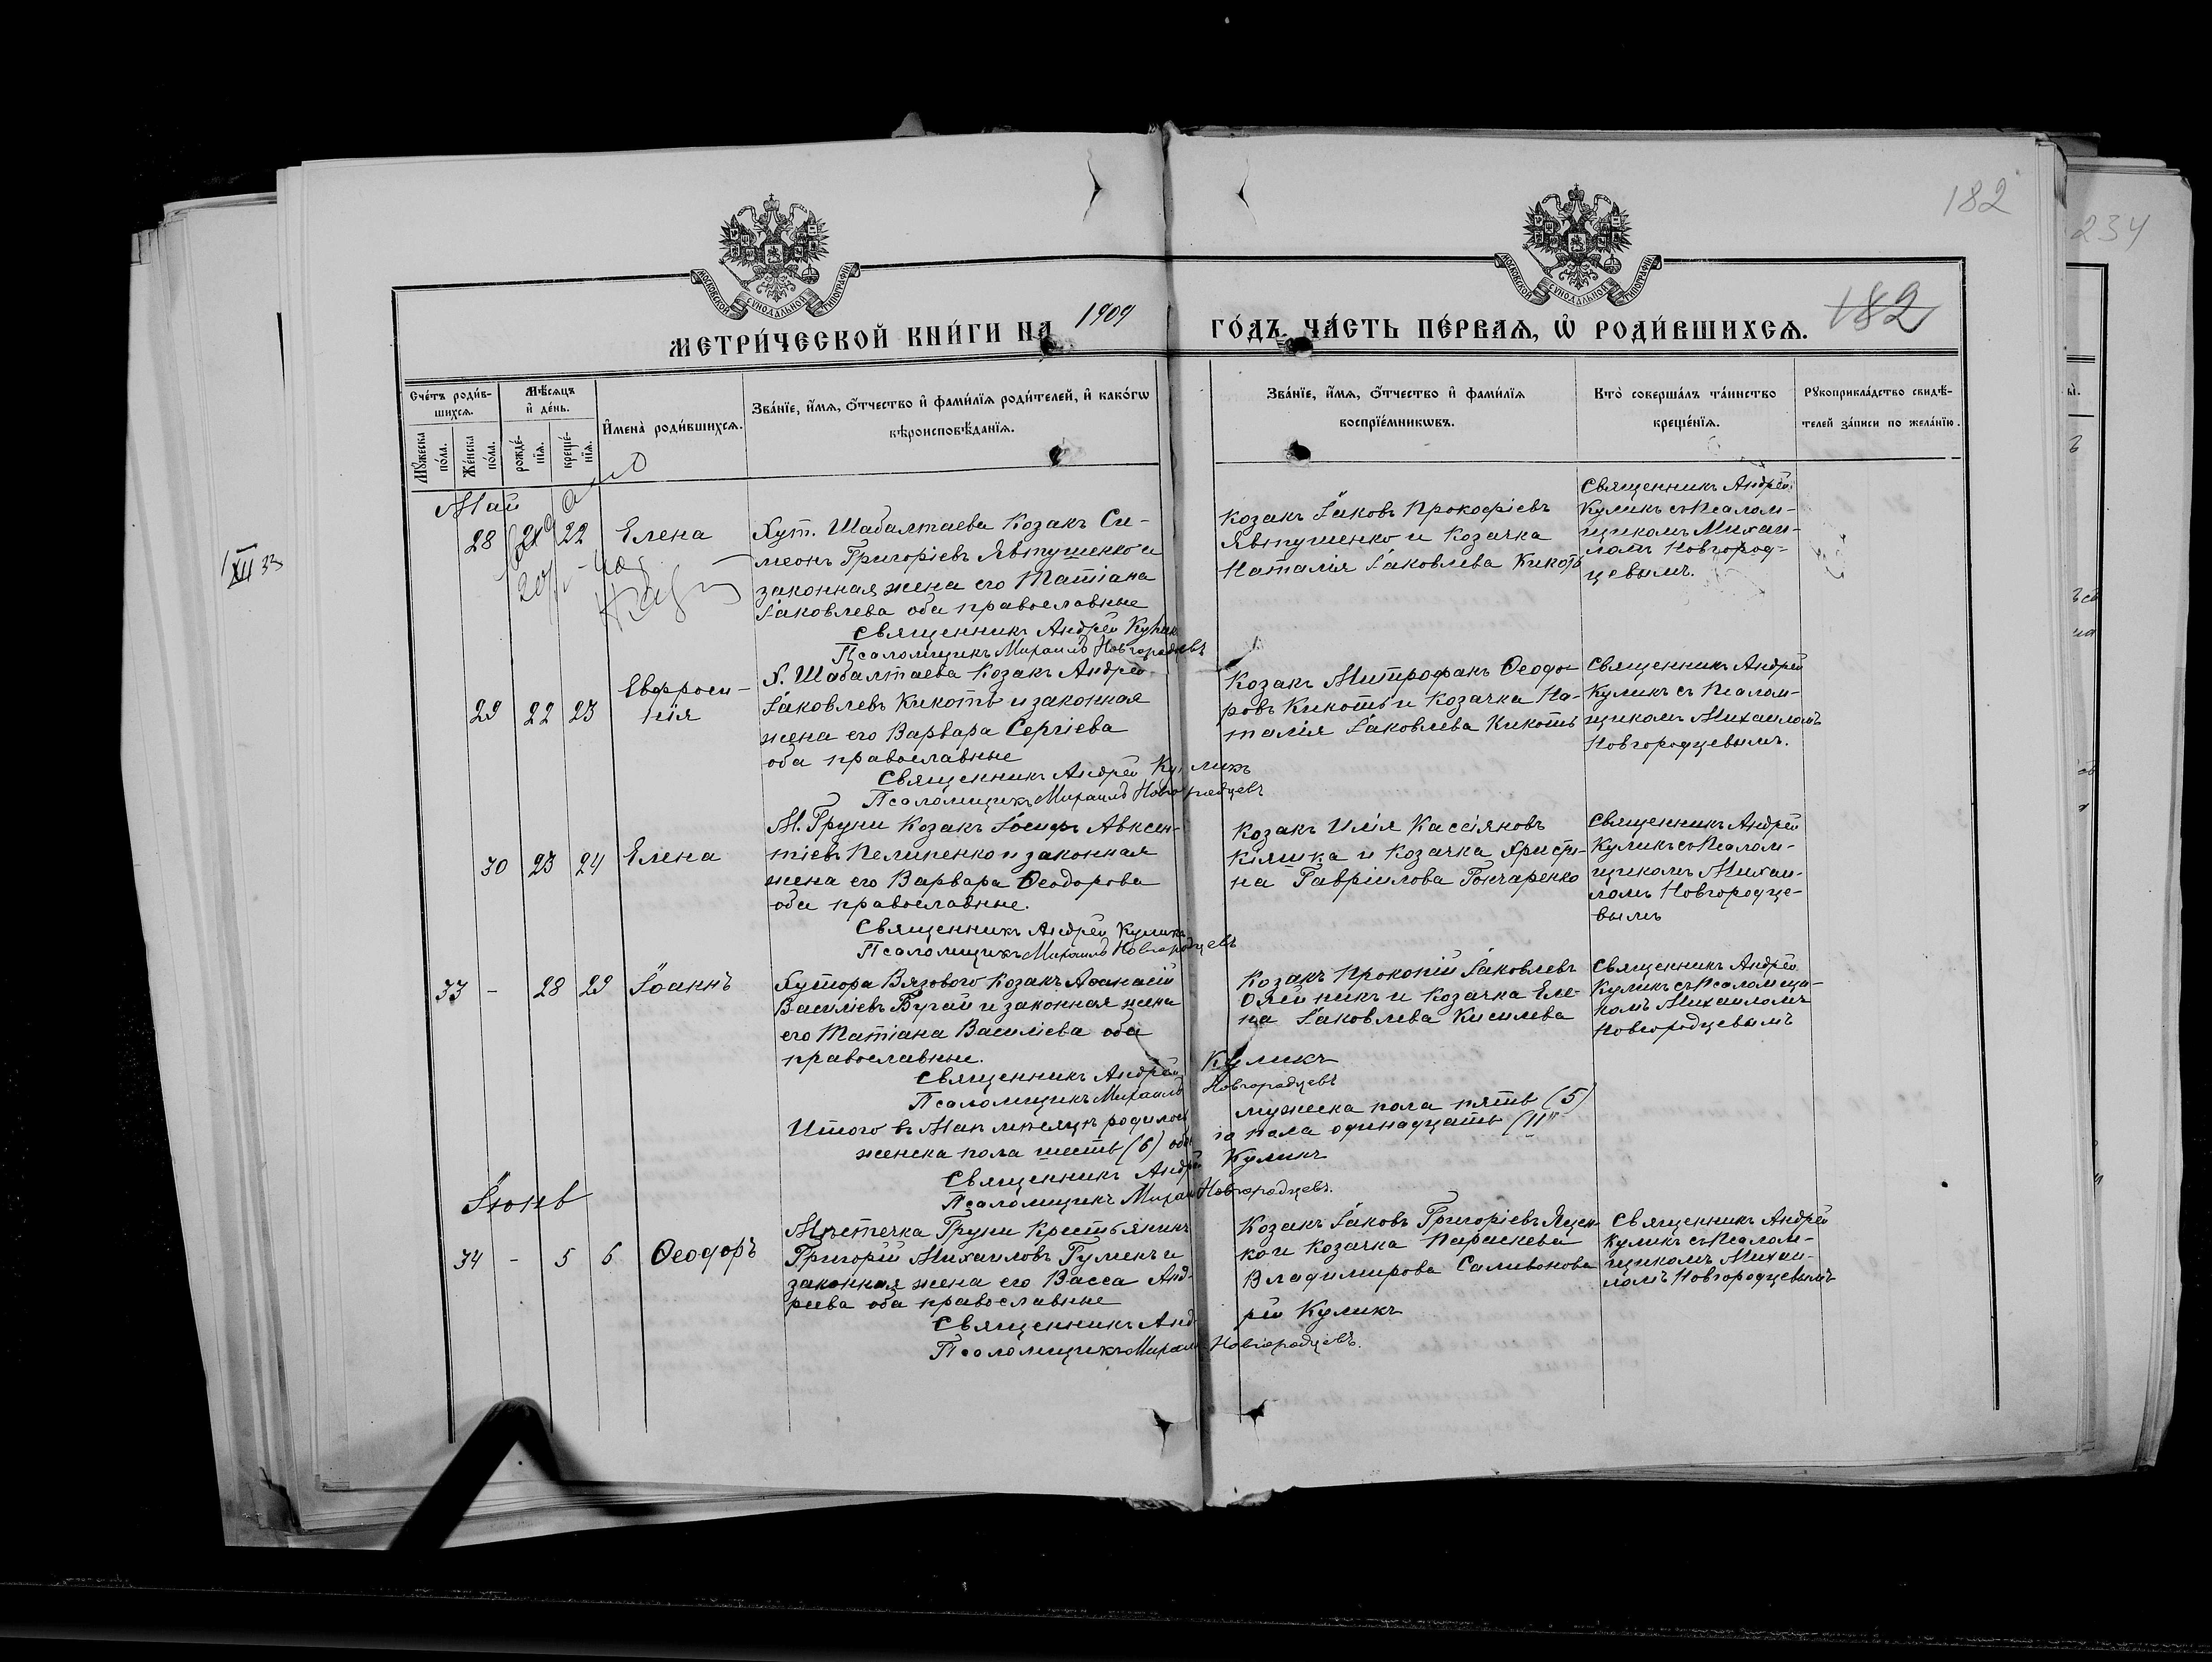 182
234
МОСКОВСКОЙ СѴНОДАЛЬНОЙ ТИПОГРАФІИ
МОСКОВСКОЙ СѴНОДАЛЬНОЙ ТИПОГРАФІИ
МЕТРИ́ЧЕСКОЙ КНИ́ГИ НА 1909 ГО́ДЪ, ЧА́СТЬ ПЕ́РВАѦ, Ѡ҆ РОДИ́ВШИХСѦ.
182
Сче́тъ роди́в-
шихсѧ.
Мѣ́сѧцъ
и҆ де́нь.
И҆мена̀ роди́вшихсѧ.
Зва́нїе, и҆́мѧ, ѻ҆́тчество и҆ фами́лїѧ роди́телей, и҆ како́гѡ
вѣроисповѣ́данїѧ.
Зва́нїе, и҆́мѧ, ѻ҆́тчество и҆ фами́лїѧ
воспрїе́мникѡвъ.
Кто̀ соверша́лъ та́инство
креще́нїѧ.
Рꙋкоприкла́дство свидѣ́-
телей за́писи по жела́нїю.
Мꙋ́жеска
по́ла.
Же́нска
по́ла.
рожде́-
нїѧ.
креще́-
нїѧ.
XII 33
Май
28 21 22 Елена
Хут. Шабалтаева Козакъ Си-
меонъ Григоріевъ Явтушенко и
законная жена его Татіана
Іаковлева оба православные
Священникъ Андрей Куликъ
Псаломщикъ Михаилъ Новгородцевъ
Козакъ Іаковъ Прокофіевъ
Явтушенко и Козачка
Наталія Іаковлева Кикоть
Священникъ Андрей
Куликъ съ Псалом-
щикомъ Михаи-
ломъ Новгород-
цевымъ.
29 22 23 Евфроси-
нія
Х. Шабалтаева Козакъ Андрей
Іаковлевъ Кикоть и законная
жена его Варвара Сергіева
оба православные
Священникъ Андрей Куликъ
Псаломщикъ Михаилъ Новгородцевъ
Козакъ Митрофанъ Ѳеодо-
ровъ Кикоть и Козачка На-
талія Іаковлева Кикоть
Священникъ Андрей
Куликъ съ Псалом-
щикомъ Михаиломъ
Новгородцевымъ.
30 23 24 Елена
М. Груни Козакъ Іосифъ Авксен-
тіевъ Пелипенко и законная
жена его Варвара Ѳеодорова
оба православные.
Священникъ Андрей Куликъ
Псаломщикъ Михаилъ Новгородцевъ
Козакъ Илія Кассіяновъ
Кіяшка и Козачка Христи-
на Гавріилова Гончаренко
Священникъ Андрей
Куликъ съ Псалом-
щикомъ Михаи-
ломъ Новгородце-
вымъ
33 - 28 29 Іоаннъ
Хутора Вязового Козакъ Аѳанасій
Василіевъ Бугай и законная жена
его Татіана Василіева оба
православные.
Священникъ Андрей Куликъ
Псаломщикъ Михаилъ Новгородцевъ
Козакъ Прокопій Іаковлевъ
Олейникъ и Козачка Еле-
на Іаковлева Киселева
Священникъ Андрей
Куликъ съ Псаломщи-
комъ Михаиломъ
Новгородцевымъ
Итого въ Маѣ мѣсяцѣ родилось мужеска пола пять (5)
женска пола шесть (6) обоего пола одинадцать (11)
Священникъ Андрей Куликъ
Псаломщикъ Михаилъ Новгородцевъ.
Іюнь
34 - 5 6 Ѳеодоръ
Мѣстечка Груни Крестьянинъ
Григорій Михаиловъ Гуменъ и
законная жена его Васса Анд-
реева оба православные
Священникъ Андрей Куликъ
Псаломщикъ Михаилъ Новгородцевъ.
Козакъ Іаковъ Григоріевъ Яцен-
ко и Козачка Параскева
Владимирова Саливонова
Священникъ Андрей
Куликъ съ Псалом-
щикомъ Михаи-
ломъ Новгородцевымъ